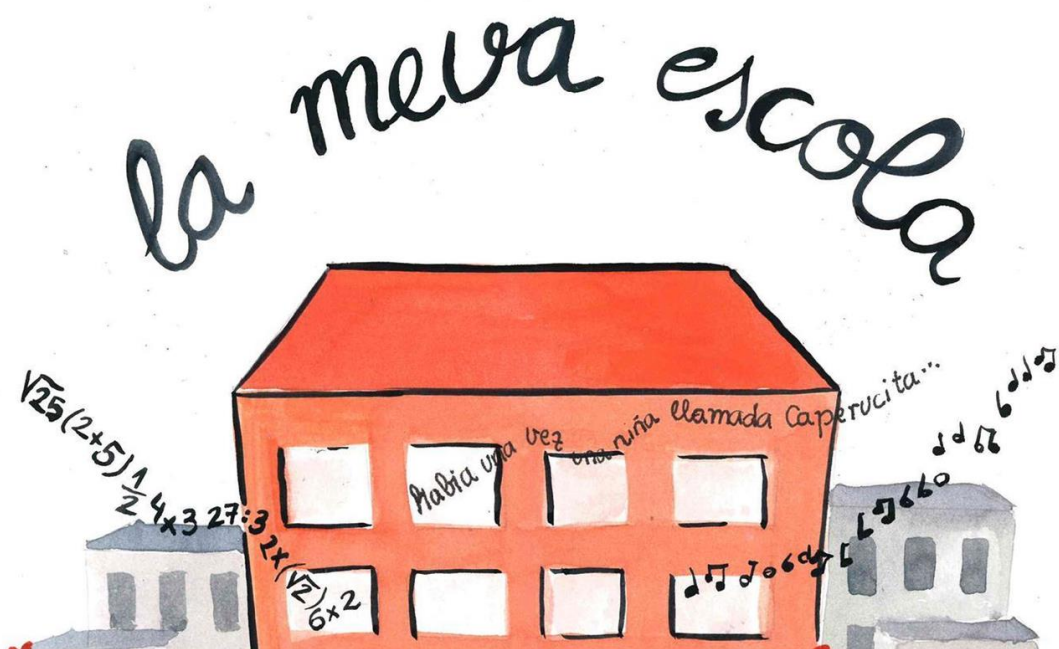 la meva escola
√25(2+5)½ 4x3 27:3 2x(√2) 6x2
Habia una vez una niña llamada Caperucita...